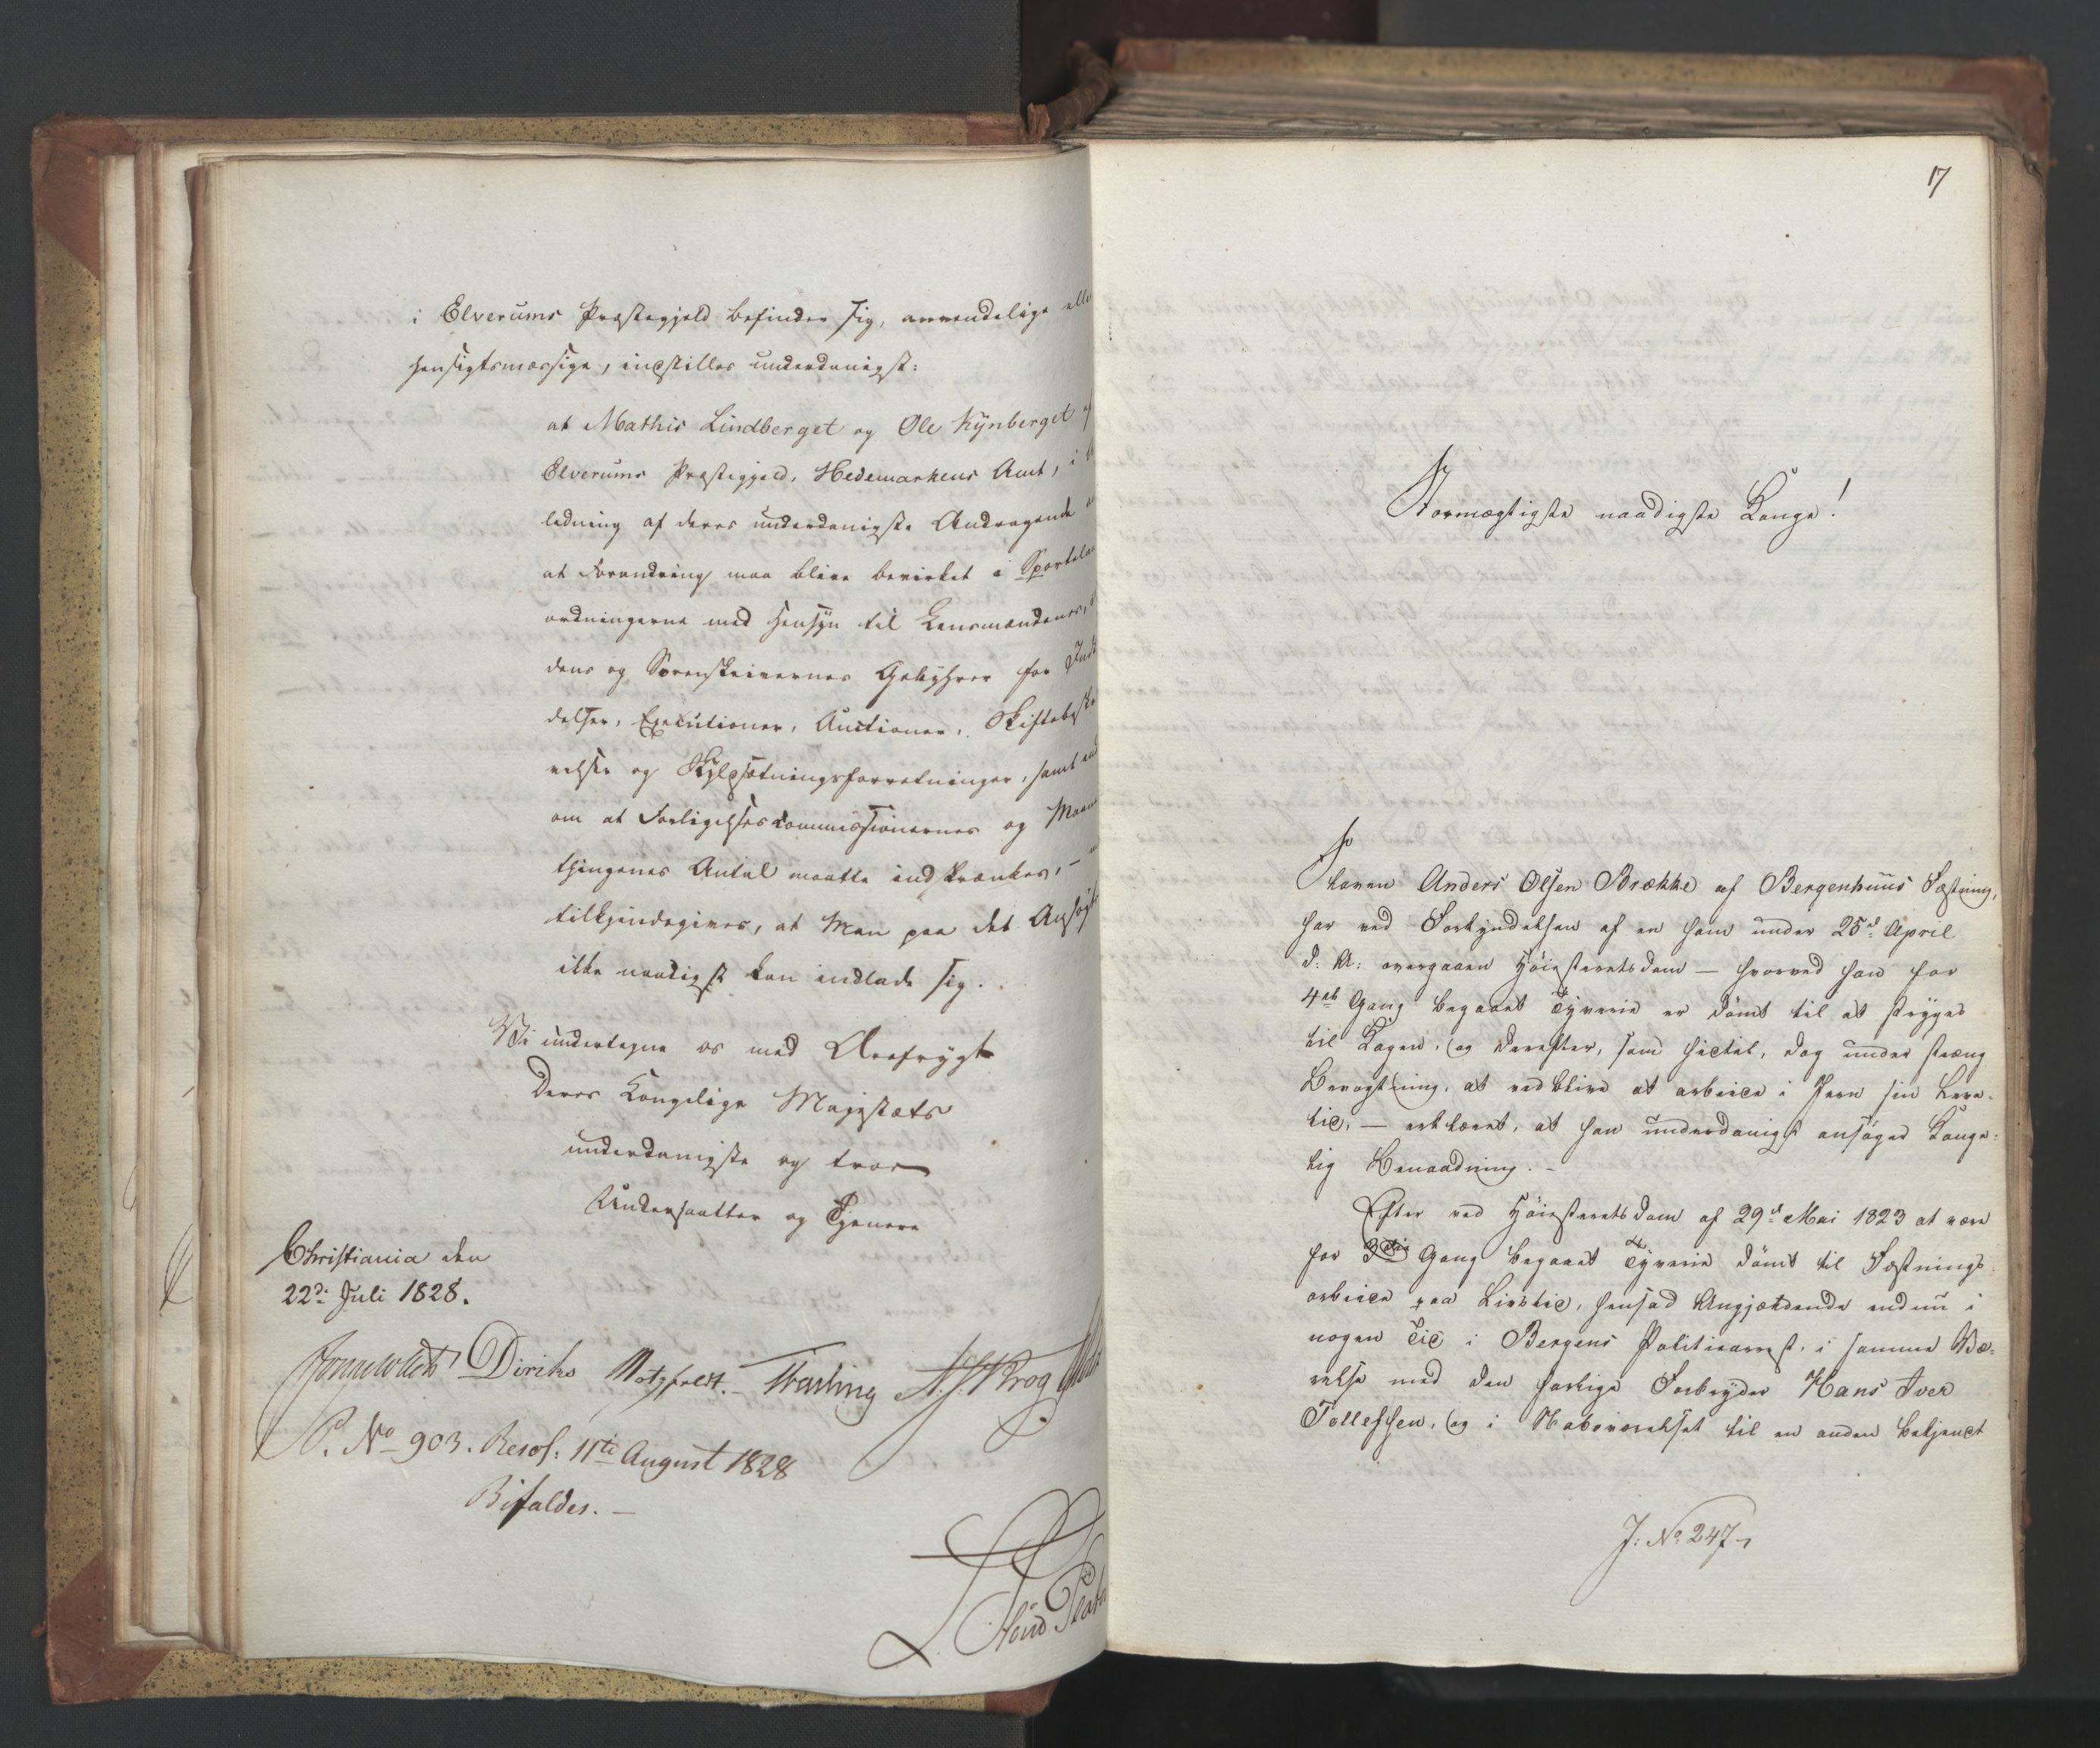 i Elverums Præstegjeld befinder sig, anvendelige elle
hensigtsmæssige, indstilles underdanigst:
at Mathis Lindberget og Ole Kynberget af
Elverums Præstegjeld, Hedemarkens Amt, i
ledning af deres underdanigste Andragende
at Forandring maa blive bevirket i Sportel
ordningerne med Hensyn til Lensmændenes,
dens og Sorenskrivernes Gebyhrer for Ind
delser, Executioner, Auctioner, Skiftebesty
relser og Skyldsætningsforretninger, samt end
om at Forligelsescommissionernes og Maane
thingenes Antal maatte indskrænkes, –
tilkjendegives, at Man paa det Ansøgte
ikke naadigst kan indlade sig.
Vi undertegne os med Ærefrygt
Deres Kongelige Majestæts
underdanigste og troe
Undersaatter og Tjenere
Christiania den
22de Juli 1828.
Diriks Motzfeldt. Fasting Krog
P. No 903. Resol: 11te August 1828
Bifaldes. –
17
Stormægtigste naadigste Konge!
Slaven Anders Olsen Brække af Bergenhuus Fæstning,
har ved Forkyndelsen af en ham under 25d April
d: A: overgaaen Høiesteretsdom – hvorved han for
4de Gang begaaet Tyverie er dømt til at stryges
til Kagen, og derefter, som hidtil, dog under stræng
Bevogtning, at vedblive at arbeide i Jern sin Livs-
tid, – erklæret, at han underdanigst ansøger Konge-
lig Benaadning. –
Efter ved Høiesteretsdom af 29d Mai 1823 at være
for 3die Gang begaaet Tyverie dømt til Fæstnings-
arbeide paa Livstid, hensad Angjældende endnu i
nogen Tid i Bergens Politiearrest, i samme Væ-
relse med den farlige Forbryder Hans Iver
Tollefsen, og i Naboværelset til en anden bekjendt
J: No 247